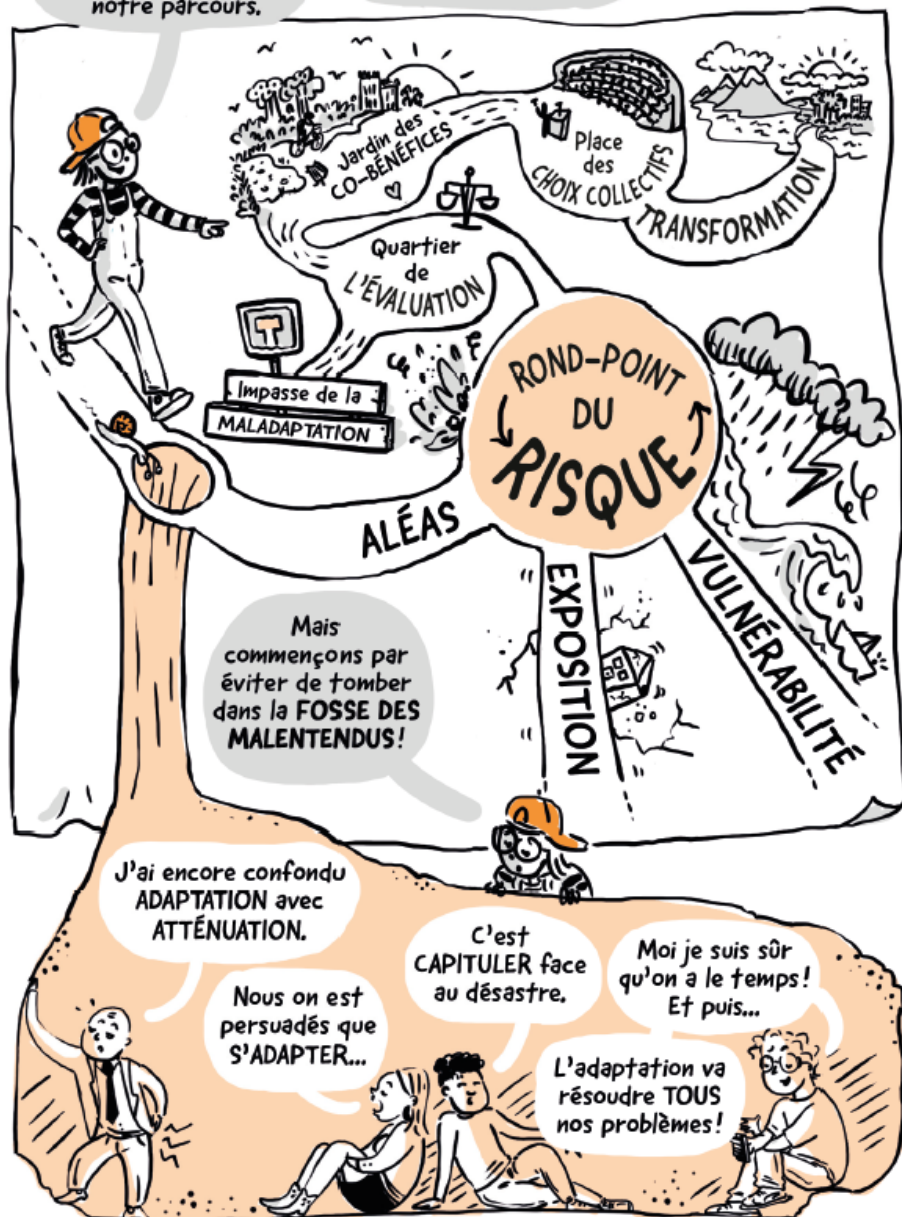 notre parcours.
Jardin des
CO-BÉNÉFICES
Place
des
CHOIX COLLECTIFS
TRANSFORMATION
Quartier
de
L'ÉVALUATION
Impasse de la
MALADAPTATION
ROND-POINT
DU
RISQUE
ALÉAS
EXPOSITION
VULNÉRABILITÉ
Mais
commençons par
éviter de tomber
dans la FOSSE DES
MALENTENDUS!
J'ai encore confondu
ADAPTATION avec
ATTÉNUATION.
Nous on est
persuadés que
S'ADAPTER...
C'est
CAPITULER face
au désastre.
Moi je suis sûr
qu'on a le temps!
Et puis...
L'adaptation va
résoudre TOUS
nos problèmes!